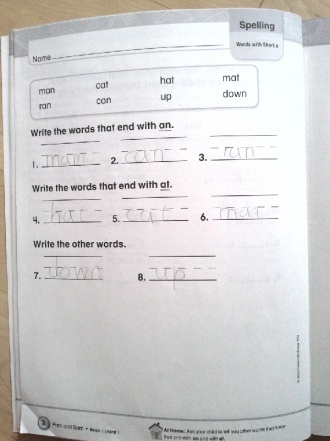 Spelling
Words with Short a
Name
man cat hat mat
ran can up down
Write the words that end with an.
1. man 2. can 3. ran
Write the words that end with at.
4. hat 5. cat 6. mat
Write the other words.
7. down 8. up
Pam and Sam • Book 1.1/Unit 1
At Home: Ask your child to tell you other words they know
that end with an and with at.